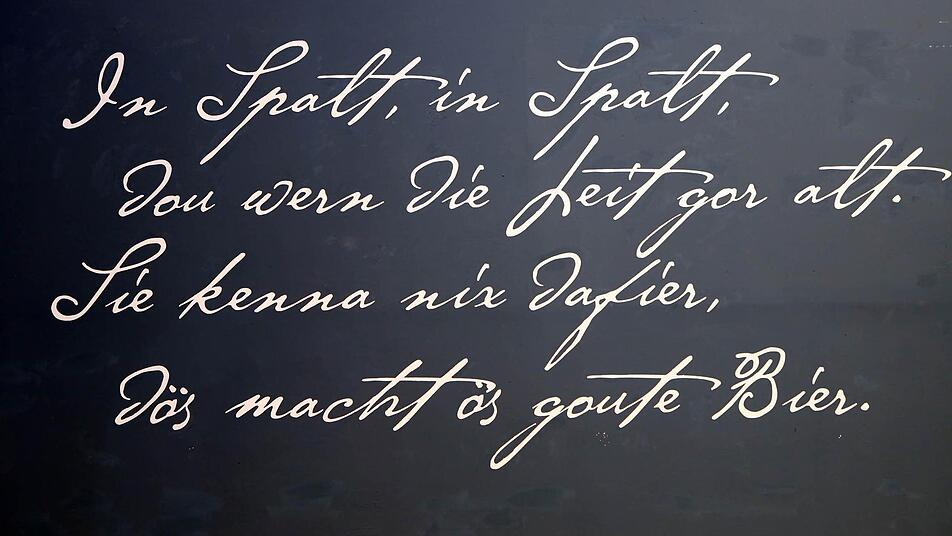 In Spalt, in Spalt,
dou wern die Leit gor alt.
Sie kenna nix dafier,
dös macht ös goute Bier.